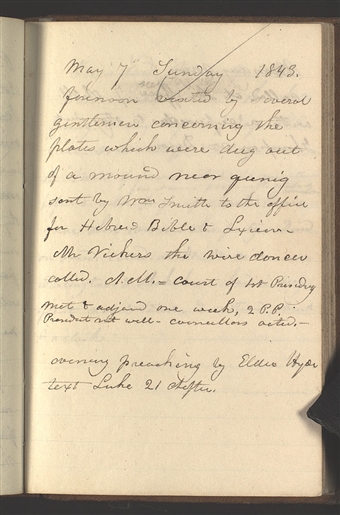 May 7 Sunday 1843.
forenoon visited by several
gentlemen concerning the
plates which were dug out
of a mound near quincy
sent by Wm Smith to the office
for Hebrew Bible & Lexicon
Mr Vickers the wire dancer
called. A.M. - court of 1st Presidency
met & adjond one week, 2 P.P.
President not well - councillors acted. -
evening preaching by Elder Hyde
text Luke 21 chapter.